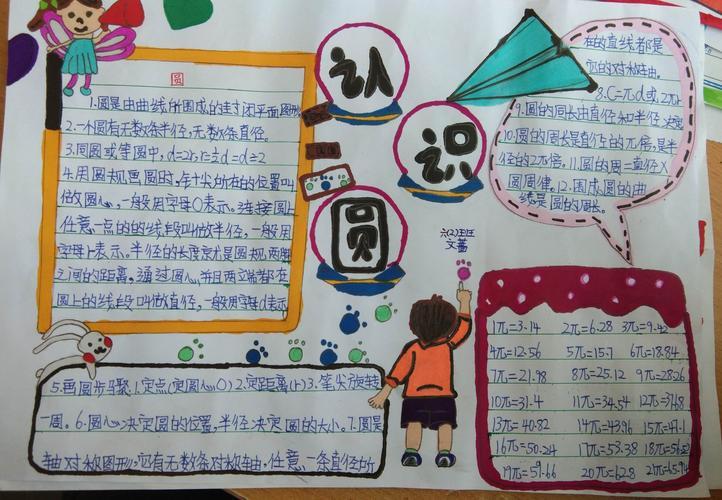 认
识
圆
圆
1.圆是由曲线所围成的封闭平面图形
2.一个圆有无数条半径,无数条直径。
3.同圆或等圆中,d=2r,r=½d=d÷2
4.用圆规画圆时,针尖所在的位置叫
做圆心,一般用字母O表示。连接圆心
任意一点的的线段叫做半径,一般用
字母r表示。半径的长度就是圆规两脚
之间的距离。通过圆心并且两端都在
圆上的线段叫做直径,一般用字母d表示
5.画圆步骤:1.定点(定圆心O)2.定距离(r)3.笔尖旋转
一周。6.圆心决定圆的位置,半径决定圆的大小。7.圆是
轴对称图形,它有无数条对称轴,任意一条直径所
在的直线都是
它的对称轴。
8.C=πd或2πr
9.圆的周长由直径和半径决定
10.圆的周长是直径的π倍,是半
径的2π倍。11.圆的周=直径×
圆周律。12.围成圆的曲
线是圆的周长。
六(2)班
文蕾
1π=3.14 2π=6.28 3π=9.42
4π=12.56 5π=15.7 6π=18.84
7π=21.98 8π=25.12 9π=28.26
10π=31.4 11π=34.54 12π=37.68
13π=40.82 14π=43.96 15π=47.1
16π=50.24 17π=53.38 18π=56.52
19π=59.66 20π=62.8 21π=65.94